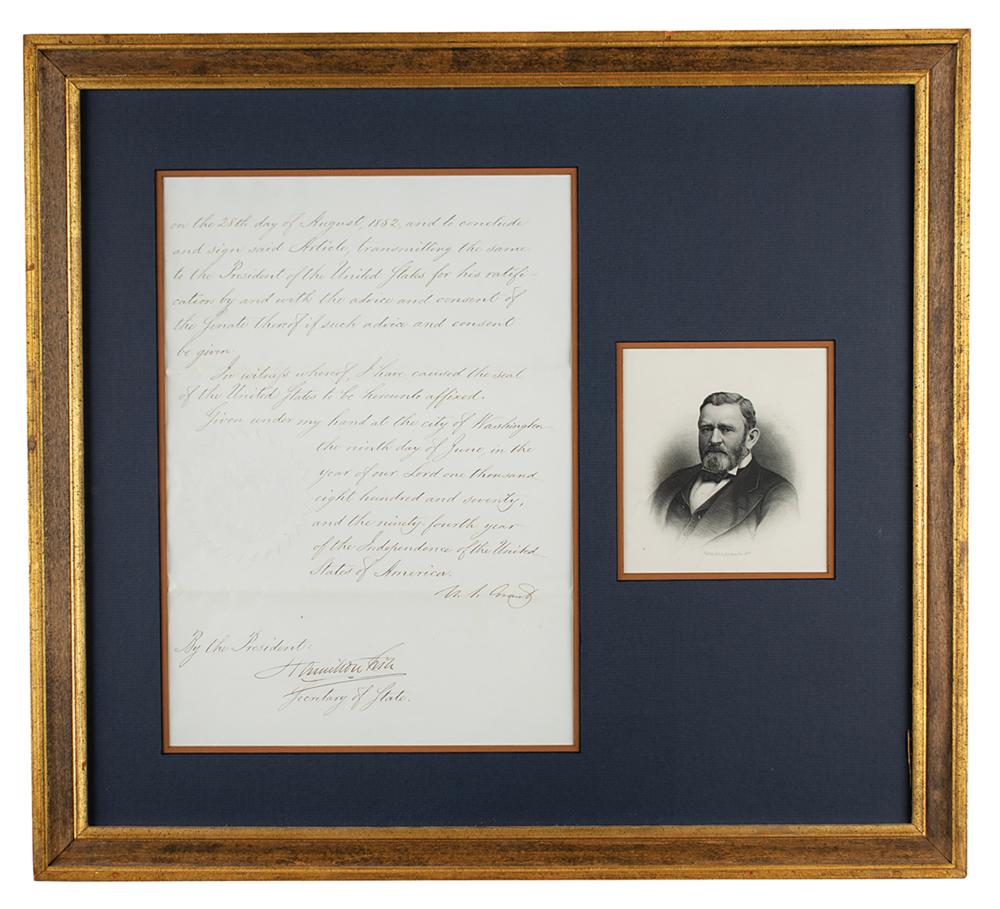 on the 28th day of August, 1852, and to conclude
and sign said Article, transmitting the same
to the President of the United States for his ratifi-
cation by and with the advice and consent of
the Senate thereof if such advice and consent
be given
In witness whereof, I have caused the seal
of the United States to be hereunto affixed.
Given under my hand at the city of Washington
the ninth day of June, in the
year of our Lord one thousand
eight hundred and seventy,
and the ninety fourth year
of the Independence of the United
States of America.
U. S. Grant
By the President:
Hamilton Fish
Secretary of State.